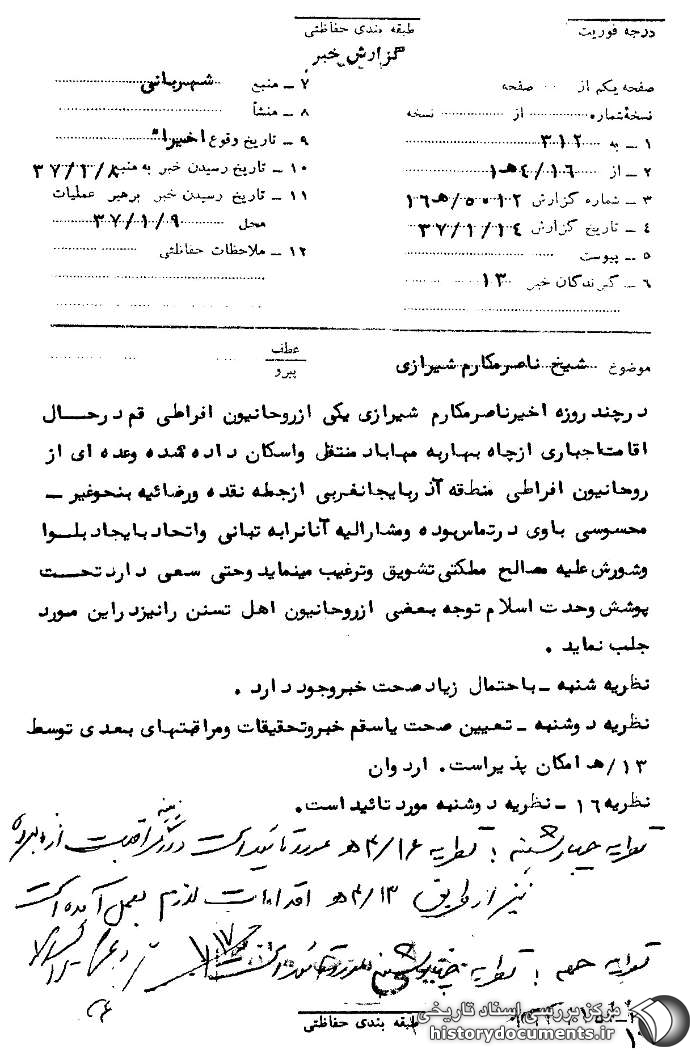 درجه فوریت
طبقه بندی حفاظتی
گزارش خبر
صفحه یکم از صفحه
نسخه شماره از نسخه
۱ ــ به ۳۱۲
۲ ــ از ۴/۱۶هـ۱
۳ ــ شماره گزارش ۵۰۱۲/هـ۱۶
۴ ــ تاریخ گزارش ۳۷/۱/۱۴
۵ ــ پیوست
۶ ــ گیرندگان خبر ۱۳
۷ ــ منبع شهربانی
۸ ــ منشأ
۹ ــ تاریخ وقوع اخیراً
۱۰ ــ تاریخ رسیدن خبر به منبع ۳۷/۱/۸
۱۱ ــ تاریخ رسیدن خبر برهبر عملیات
محل ۳۷/۱/۹
۱۲ ــ ملاحظات حفاظتی
موضوع شیخ ناصر مکارم شیرازی
عطف
پیرو
در چند روزه اخیر ناصر مکارم شیرازی یکی از روحانیون افراطی قم در حال
اقامت اجباری از چاه بهار به مهاباد منتقل و اسکان داده شده و عده ای از
روحانیون افراطی منطقه آذربایجانغربی از جمله نقده و رضائیه بنحو غیر ــ
محسوسی با وی در تماس بوده و مشارالیه آنان را به تبانی و اتحاد با ایجاد بلوا
و شورش علیه مصالح مملکتی تشویق و ترغیب مینماید و حتی سعی دارد تحت
پوشش وحدت اسلام توجه بعضی از روحانیون اهل تسنن را نیز در این مورد
جلب نماید .
نظریه شنبه ــ با احتمال زیاد صحت خبر وجود دارد .
نظریه دوشنبه ــ تعیین صحت یا سقم خبر و تحقیقات و مراقبتهای بعدی توسط
۱۳/هـ امکان پذیر است. اردوان
نظریه ۱۶ ــ نظریه دوشنبه مورد تائید است.
نظریه چهارشنبه : نظریه ۴/۱۶هـ مورد تائید است و در زمینه مراقبت از نامبرده
نیز از طریق ۴/۱۳هـ اقدامات لازم بعمل آمده است
نظریه جمعه : نظریه چهارشنبه مورد تائید است
۱/۱۷
طبقه بندی حفاظتی
مرکز بررسی اسناد تاریخی
historydocuments.ir